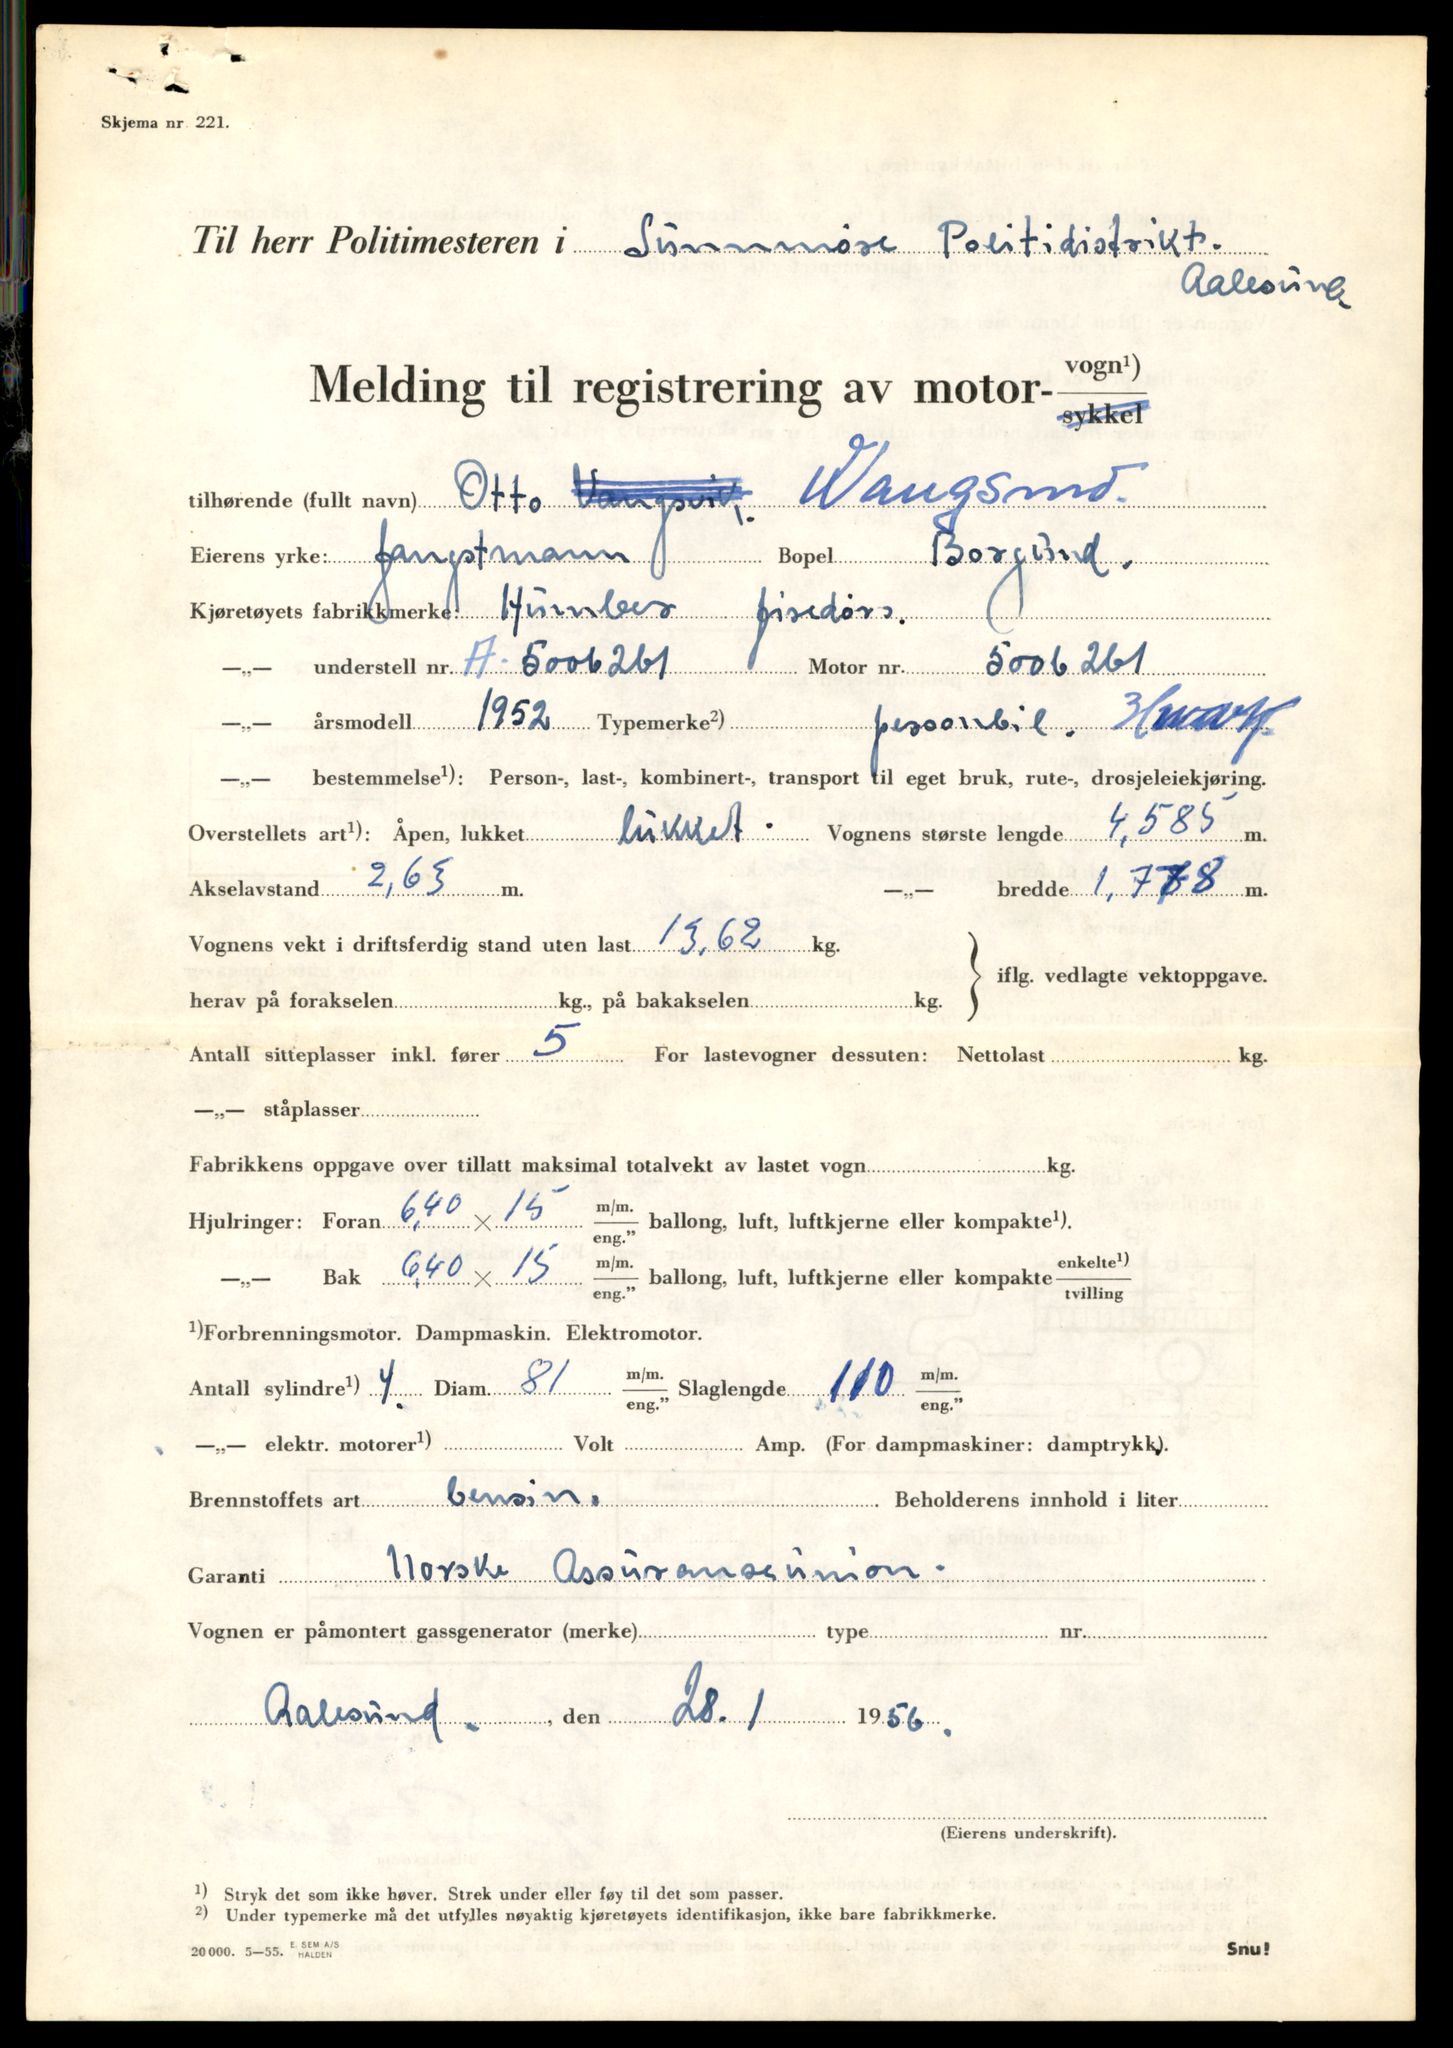 Skjema nr 221.
Til herr Politimesteren i Sunnmöre Politidistrikt.
Aalesund
Melding til registrering av motor- vogn¹)
sykkel
tilhørende (fullt navn) Otto Vangsvik. Wangsmo.
Eierens yrke: fangstmann Bopel Borgund.
Kjøretøyets fabrikkmerke: Humber firedörs.
—„— understell nr. A. 5006261 Motor nr. 5006261
—„— årsmodell 1952 Typemerke²) personbil.
—„— bestemmelse¹): Person-, last-, kombinert-, transport til eget bruk, rute-, drosjeleiekjøring.
Overstellets art¹): Åpen, lukket lukket. Vognens største lengde 4,585 m.
Akselavstand 2,65 m. —„— bredde 1,778 m.
Vognens vekt i driftsferdig stand uten last 13,62 kg.
iflg. vedlagte vektoppgave.
herav på forakselen kg., på bakakselen kg.
Antall sitteplasser inkl. fører 5 For lastevogner dessuten: Nettolast kg.
—„— ståplasser
Fabrikkens oppgave over tillatt maksimal totalvekt av lastet vogn kg.
Hjulringer: Foran 6,40 × 15 m/m. eng.” ballong, luft, luftkjerne eller kompakte¹).
—„— Bak 6,40 × 15 m/m. eng.” ballong, luft, luftkjerne eller kompakte enkelte¹) tvilling
¹)Forbrenningsmotor. Dampmaskin. Elektromotor.
Antall sylindre¹) 4. Diam. 81 m/m. eng.” Slaglengde 110 m/m. eng.”
—„— elektr. motorer¹) Volt Amp. (For dampmaskiner: damptrykk).
Brennstoffets art bensin. Beholderens innhold i liter
Garanti Norske Assuranseunion.
Vognen er påmontert gassgenerator (merke) type nr.
Aalesund. , den 28. 1 1956.
(Eierens underskrift).
¹) Stryk det som ikke høver. Strek under eller føy til det som passer.
²) Under typemerke må det utfylles nøyaktig kjøretøyets identifikasjon, ikke bare fabrikkmerke.
20 000. 5—55. E. SEM A/S HALDEN
Snu!